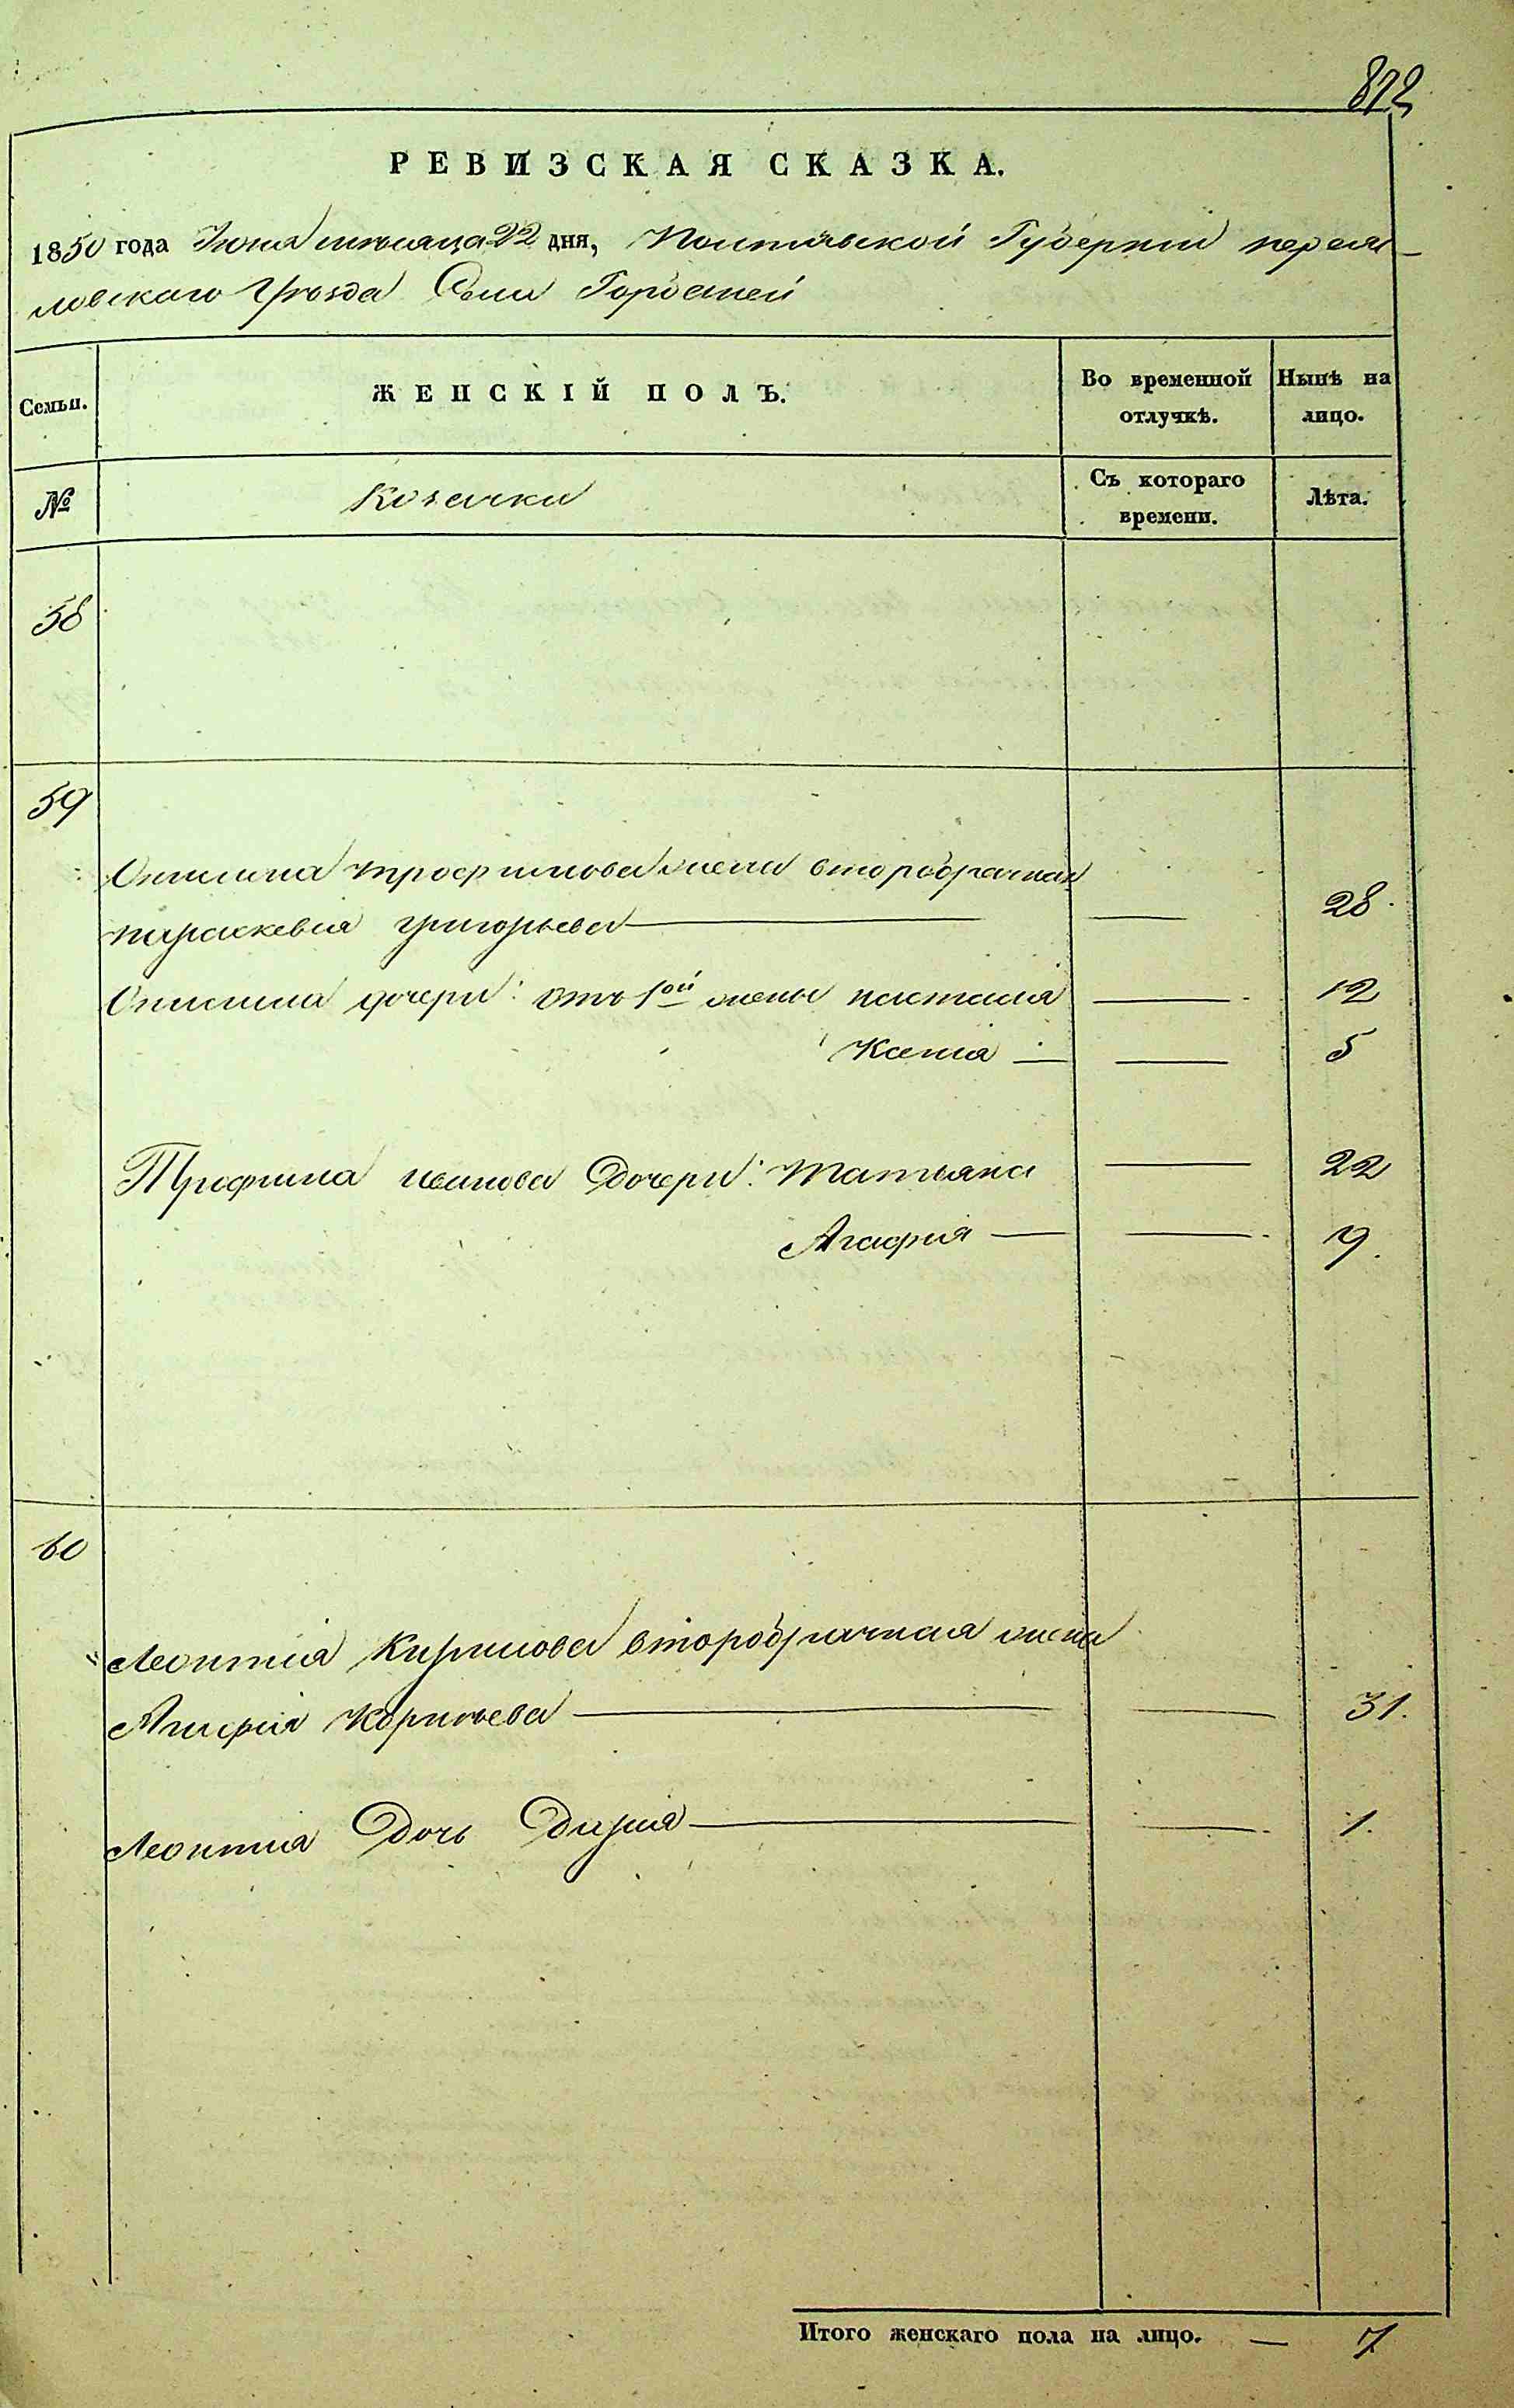 812
РЕВИЗСКАЯ СКАЗКА.
1850 года Июня месяца 22 дня, Полтавской Губернии переяс-
ловского Уезда Села Горбаней
Семьи.
ЖЕНСКІЙ ПОЛЪ.
Во временной отлучкѣ.
Нынѣ на лицо.
№
Козачки
Съ котораго времени.
Лѣта.
58
59
Онисима трофимова жена второбрачная
параскевія григорьева — — 28
Онисима дочери: отъ 1ой жены настасія — 12
Ксенія — — 5
Трофима иванова Дочери: Татьяна — 22
Агафія — — 9.
60
Леонтія Кирилова второбрачная жена
Агафія Корнѣева — — 31.
Леонтія Дочь Дарія — — 1.
Итого женскаго пола на лицо. — 7